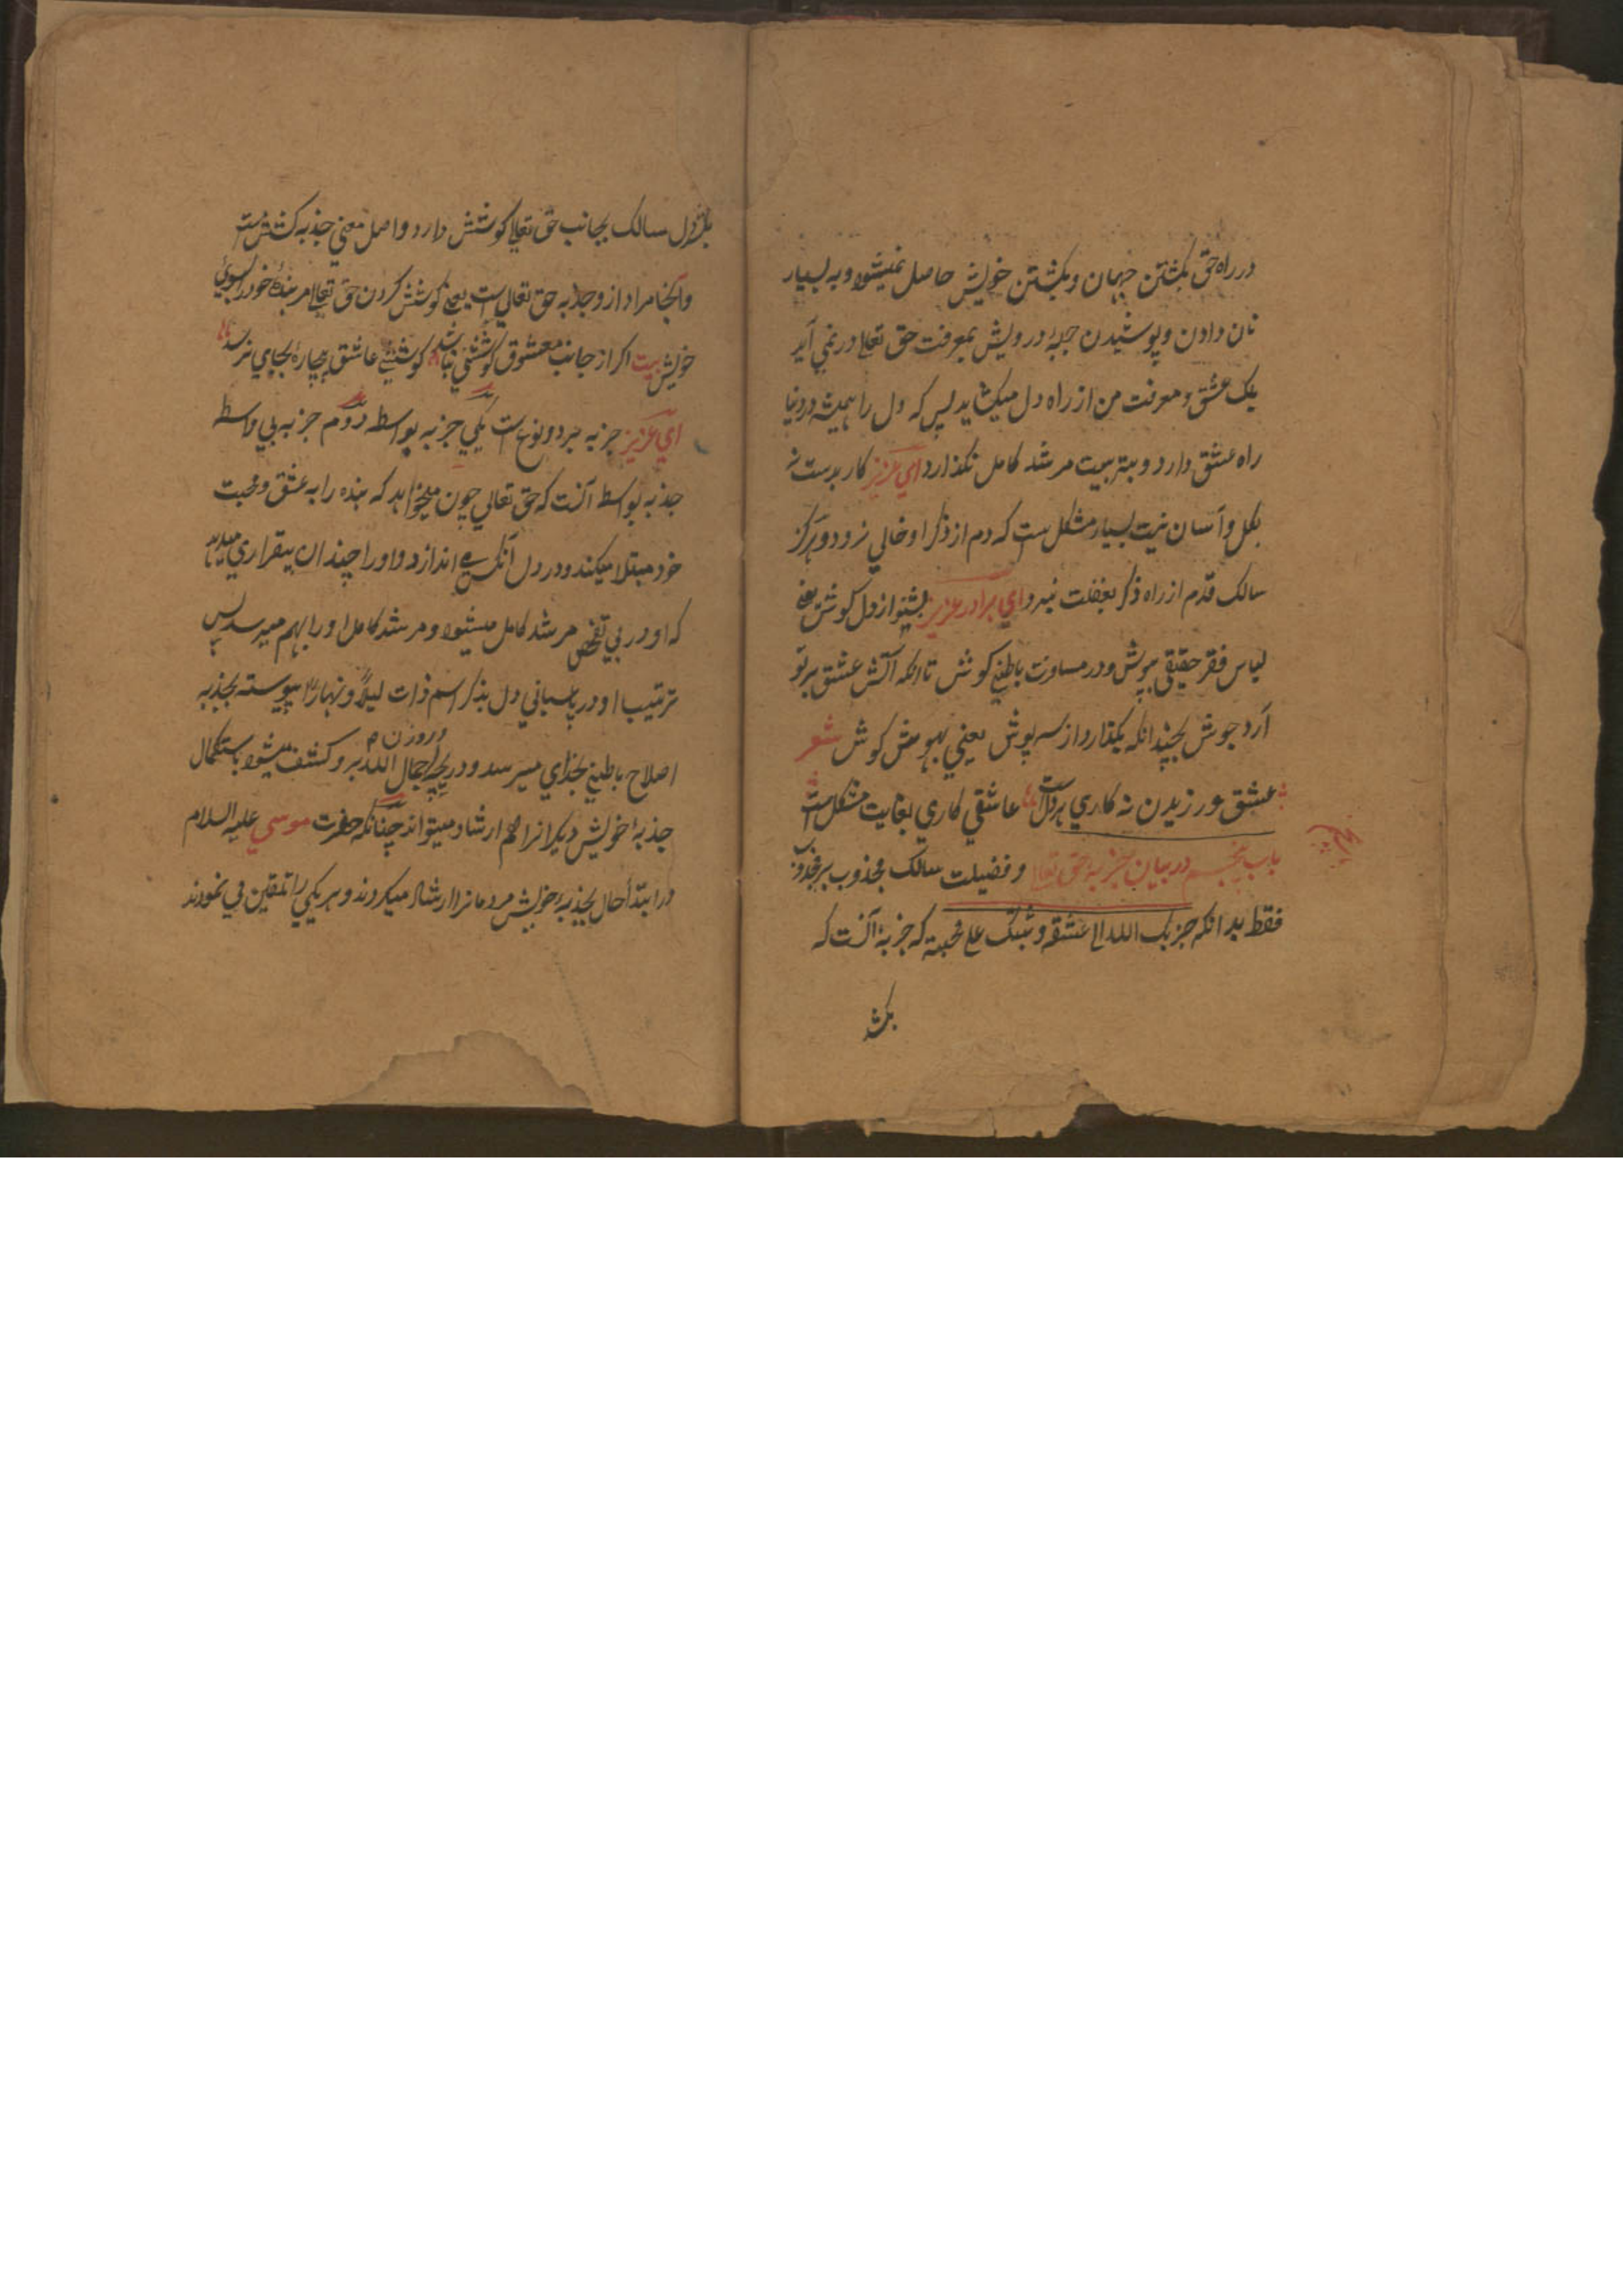 در راه حق بگشتن جهان و بکشتن خویش حاصل نمیشود و به بسیار
نان دادن و پوشیدن جبهٔ درویش بمعرفت حق تعالی در نمی آید
یک عشق و معرفت من از راه دل میکشاید پس که دل را همیشه در دنیا
راه عشق دارد و بتربیت مرشد کامل نگذارد ای عزیز کار بدست نه
بکل و آسان نیت بسیار مشکل ست که دم از ذکر او خالی نرود و هرگز
سالک قدم از راه ذکر بغفلت نبرد ای برادر عزیز بشنو از دل گوش یعنی
لباس فقر حقیقی بپوش و در باطنی کوش تا انکه آتش عشق بر تو
آرد جوش بچندانکه یکقدار داز سرپوش یعنی بهو مش کوش شعر
عشق ورزیدن نه کاری هر دلست عاشقی کاری بغایت مشکل است
باب پنجم در بیان جزبهٔ حق تعالی و فضیلت سالک مجذوب بر مجذوب
فقط بدانکه جزبک الله الی عشقه و ثبتک علی محبته که جزبهٔ آنست که
بکشش
بکشش دل سالک بجانب حق تعالی کوشش دارد و اصل معنی جذبه کشش ست
و آنجا مراد از و جذبه حق تعالی ست یعنی کوشش کردن حق تعالی مر بندهٔ خود را بسوئ
خویش بیت اکر از جانب معشوق نباشد کوششی کوشش عاشق بیچاره بجای نرسد
ای عزیز جزبه بر دو نوع ست یکی جزبه بواسطه دوم جزبه بی واسطه
جذبه بواسطه آنست که حق تعالی چون میخواهد که بنده را به عشق و محبت
خود مبتلا میکند و در دل آنکسی اندازد و او را چندان بیقراری میدهد
که او در پی تفحص مرشد کامل میشود و مرشد کامل او را بهم میرسد پس
ترتیب او در پاسبانی دل بذکر اسم ذات لیلاً و نهاراً پیوسته بجذبه
و روزن
اصلاح باطنی بخدای میرسد و دریچه جمال الله برو کشف میشود باستکمال
جذبهٔ خویش دیکرانرا هم ارشاد میتواند چنانکه حضرت موسی علیه السلام
در ابتدأ حال بجذبهٔ خویش مردمانرا ارشاد میکردند و هر یکی را تلقین می نمودند